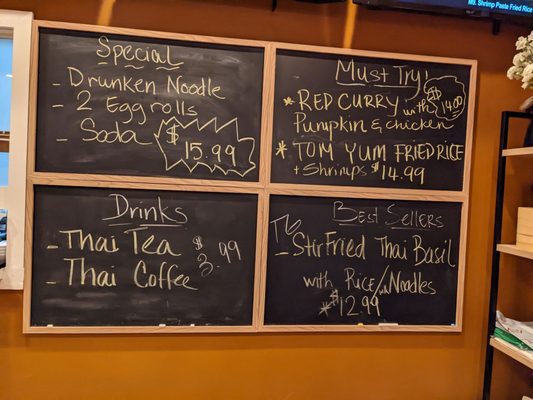 M5. Shrimp Paste Fried Rice
Special
- Drunken Noodle
- 2 Egg rolls
- Soda
$15.99
Must Try!
* RED CURRY with
Pumpkin & chicken
$14.00
* TOM YUM FRIED RICE
+ Shrimps $14.99
Drinks
- Thai Tea $3.99
- Thai Coffee
Best Sellers
- Stir Fried Thai Basil
with Rice/Noodles
* $12.99